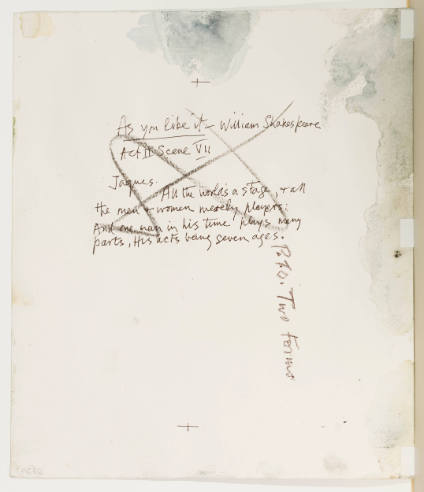 As you like it – William Shakespeare
Act II Scene VII
Jaques.
All the worlds a stage, & all
the men & women merely players:
And one man in his time plays many
parts, His acts being seven ages.
Two forms